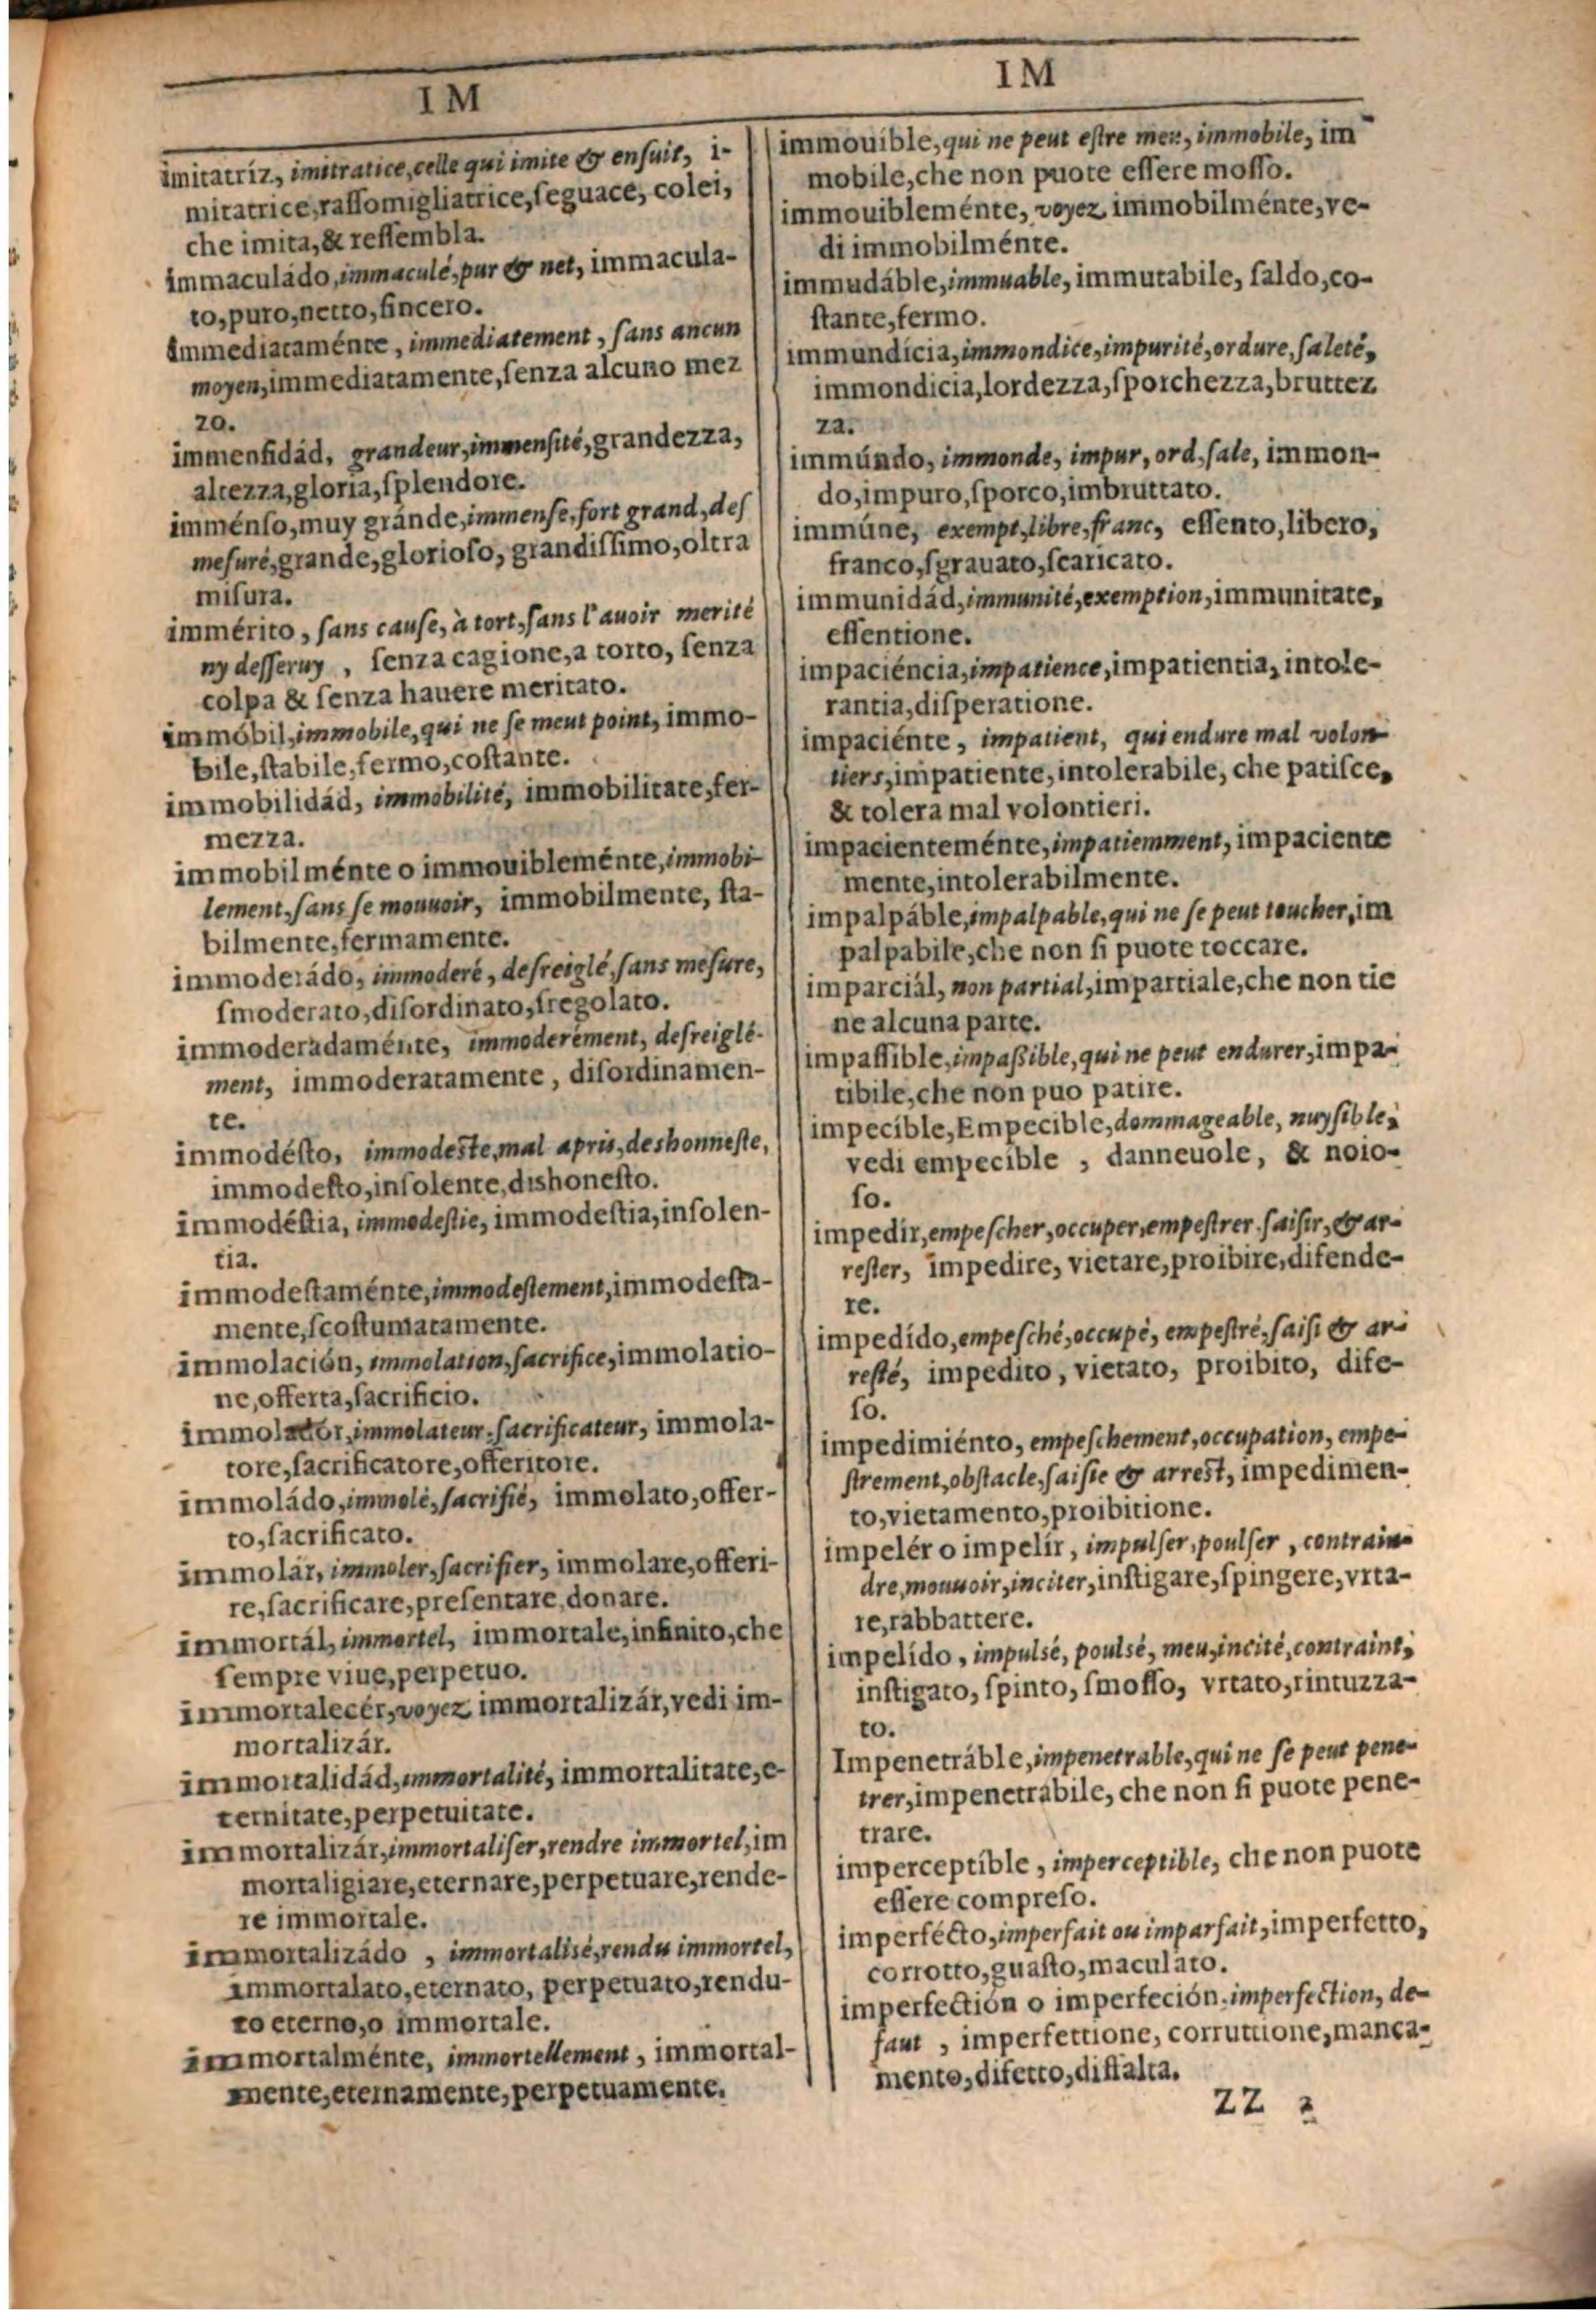 IM
imitatríz, imitratice, celle qui imite & ensuit, i-
mitatrice, raſſomigliatrice, ſeguace, colei,
che imita, & reſſembla.
immaculádo, immaculé, pur & net, immacula-
to, puro, netto, ſincero.
immediataménte, immediatement, ſans aucun
moyen, immediatamente, ſenza alcuno mez
zo.
immenſidád, grandeur, immenſité, grandezza,
altezza, gloria, ſplendore.
imménſo, muy gránde, immenſe, fort grand, deſ
meſuré, grande, glorioſo, grandiſſimo, oltra
miſura.
immérito, ſans cauſe, à tort, ſans l'auoir merité
ny deſſeruy, ſenza cagione, a torto, ſenza
colpa & ſenza hauere meritato.
immóbil, immobile, qui ne ſe meut point, immo-
bile, ſtabile, fermo, coſtante.
immobilidád, immobilité, immobilitate, fer-
mezza.
immobilménte o immouibleménte, immobi-
lement, ſans ſe mouuoir, immobilmente, ſta-
bilmente, fermamente.
immoderádo, immoderé, deſreiglé, ſans meſure,
ſmoderato, diſordinato, ſregolato.
immoderadaménte, immoderément, deſreiglé-
ment, immoderatamente, diſordinamen-
te.
immodéſto, immodeſte, mal apris, deshonneſte,
immodeſto, inſolente, dishoneſto.
immodéſtia, immodeſtie, immodeſtia, inſolen-
tia.
immodeſtaménte, immodeſtement, immodeſta-
mente, ſcoſtumatamente.
immolación, immolation, ſacrifice, immolatio-
ne, offerta, ſacrificio.
immoladór, immolateur, ſacrificateur, immola-
tore, ſacrificatore, offeritore.
immoládo, immolé, ſacrifié, immolato, offer-
to, ſacrificato.
immolár, immoler, ſacrifier, immolare, offeri-
re, ſacrificare, preſentare, donare.
immortál, immortel, immortale, infinito, che
ſempre viue, perpetuo.
immortalecér, voyez immortalizár, vedi im-
mortalizár.
immortalidád, immortalité, immortalitate, e-
ternitate, perpetuitate.
immortalizár, immortaliſer, rendre immortel, im
mortaligiare, eternare, perpetuare, rende-
re immortale.
immortalizádo, immortalisé, rendu immortel,
immortalato, eternato, perpetuato, rendu-
to eterno, o immortale.
immortalménte, immortellement, immortal-
mente, eternamente, perpetuamente.
IM
immouíble, qui ne peut eſtre meu, immobile, im
mobile, che non puote eſſere moſſo.
immouibleménte, voyez immobilménte, ve-
di immobilménte.
immudáble, immuable, immutabile, ſaldo, co-
ſtante, fermo.
immundícia, immondice, impurité, ordure, ſaleté,
immondicia, lordezza, ſporchezza, bruttez
za.
immúndo, immonde, impur, ord, ſale, immon-
do, impuro, ſporco, imbruttato.
immúne, exempt, libre, franc, eſſento, libero,
franco, ſgrauato, ſcaricato.
immunidád, immunité, exemption, immunitate,
eſſentione.
impaciéncia, impatience, impatientia, intole-
rantia, diſperatione.
impaciénte, impatient, qui endure mal volon-
tiers, impatiente, intolerabile, che patiſce,
& tolera mal volontieri.
impacienteménte, impatiemment, impaciente
mente, intolerabilmente.
impalpáble, impalpable, qui ne ſe peut toucher, im
palpabile, che non ſi puote toccare.
imparciál, non partial, impartiale, che non tie
ne alcuna parte.
impaſſíble, impaßible, qui ne peut endurer, impa-
tibile, che non puo patire.
impecíble, Empecible, dommageable, nuyſible,
vedi empecíble, danneuole, & noio-
ſo.
impedír, empeſcher, occuper, empeſtrer, ſaiſir, & ar-
reſter, impedire, vietare, proibire, difende-
re.
impedído, empeſché, occupé, empeſtré, ſaiſi & ar-
reſté, impedito, vietato, proibito, dife-
ſo.
impedimiénto, empeſchement, occupation, empe-
ſtrement, obſtacle, ſaiſie & arreſt, impedimen-
to, vietamento, proibitione.
impelér o impelír, impulſer, poulſer, contrain-
dre, mouuoir, inciter, inſtigare, ſpingere, vrta-
re, rabbattere.
impelído, impulsé, poulsé, meu, incité, contraint,
inſtigato, ſpinto, ſmoſſo, vrtato, rintuzza-
to.
Impenetráble, impenetrable, qui ne ſe peut pene-
trer, impenetrabile, che non ſi puote pene-
trare.
imperceptíble, imperceptible, che non puote
eſſere compreſo.
imperfécto, imperfait ou imparfait, imperfetto,
corrotto, guaſto, maculato.
imperfectión o imperfeción, imperfection, de-
faut, imperfettione, corruttione, manca-
mento, difetto, diffalta.
ZZ 2